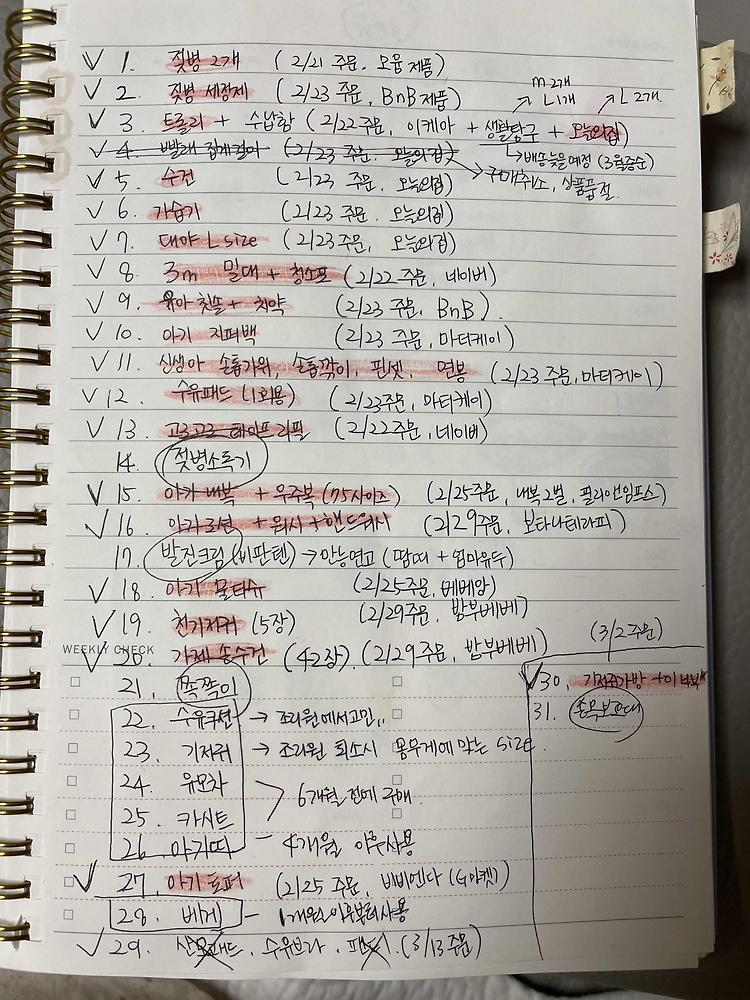 ✓ 1. 젖병 2개 (2/21 주문. 모윰 제품)
✓ 2. 젖병 세정제 (2/23 주문, BnB 제품)
m 2개
L 1개
L 2개
✓ 3. 트롤리 + 수납함 (2/22 주문, 이케아 + 생활탐구 + 오늘의집)
배송늦을예정 (3월중순)
✓ 4. 빨래 집게걸이 (2/23 주문. 오늘의집)
구매취소, 상품품절.
✓ 5. 수건 (2/23 주문, 오늘의집)
✓ 6. 가습기 (2/23 주문. 오늘의집)
✓ 7. 대야 L size (2/23 주문, 오늘의집)
✓ 8. 3m 밀대 + 청소포 (2/22 주문, 네이버)
✓ 9. 유아 칫솔 + 치약 (2/23 주문, BnB)
✓ 10. 아기 지퍼백 (2/23 주문, 마터케이)
✓ 11. 신생아 손톱가위, 손톱깎이, 핀셋, 면봉 (2/23 주문, 마터케이)
✓ 12. 수유패드 (1회용) (2/23주문, 마터케이)
✓ 13. 고고고고 테이프 리필 (2/22주문, 네이버)
14. 젖병소독기
✓ 15. 아가 내복 + 우주복 (75사이즈) (2/25주문, 내복2벌, 필리앤임프스)
✓ 16. 아가로션 + 워시 + 핸드워시 (2/29주문, 보타니테라피)
17. 발진크림 (비판텐) → 만능연고 (땀띠 + 엄마유두)
✓ 18. 아기 물티슈 (2/25주문, 베베앙)
✓ 19. 천기저귀 (5장) (2/29주문, 밤부베베)
WEEKLY CHECK
✓ 20. 가제 손수건 (42장). (2/29주문, 밤부베베)
21. 쪽쪽이
22. 수유쿠션 → 조리원에서고민..
23. 기저귀 → 조리원 퇴소시 몸무게에 맞는 size.
24. 유모차
25. 카시트
6개월 전에 구매.
26. 아기띠 - 4개월 이후사용
✓ 27. 아기 토퍼 (2/25 주문, 비비엔다 (G마켓))
28. 베게 - 1개월이후부터사용
✓ 29. 산모패드, 수유브라, 팬티. (3/13주문)
(3/2주문)
✓ 30. 기저귀가방 + 이 내복
31. 손목보호대